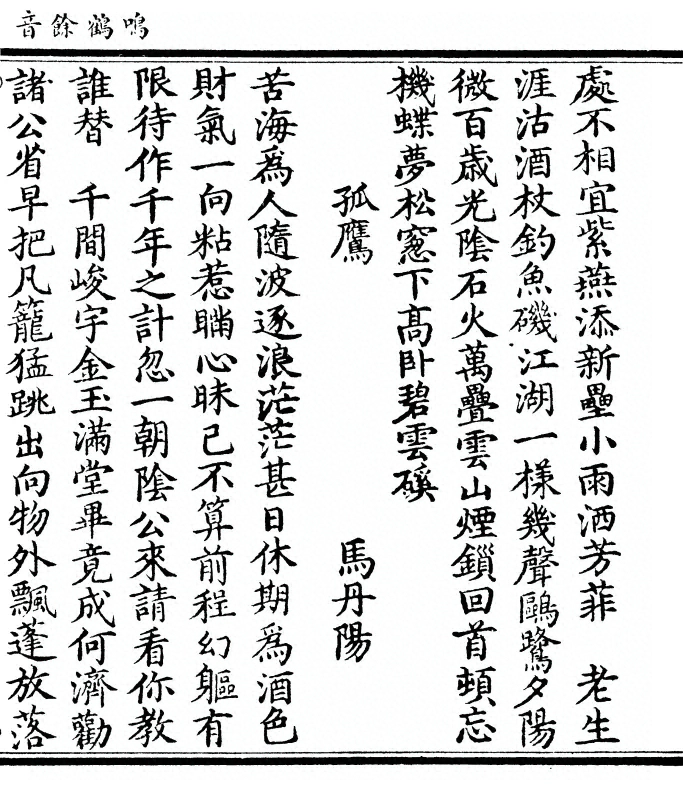 鳴鶴餘音
處不相宜紫燕添新壘小雨洒芳菲　老生
涯沽酒杖釣魚磯江湖一樣幾聲鷗鷺夕陽
微百歲光陰石火萬疊雲山煙鎖回首頓忘
機蝶夢松窻下高卧碧雲磎
孤鷹　馬丹陽
苦海爲人隨波逐浪茫茫甚日休期爲酒色
財氣一向粘惹瞞心昧己不算前程幻軀有
限待作千年之計忽一朝陰公來請看你教
誰替　千間峻宇金玉滿堂畢竟成何濟勸
諸公省早把凡籠猛跳出向物外飄蓬放落